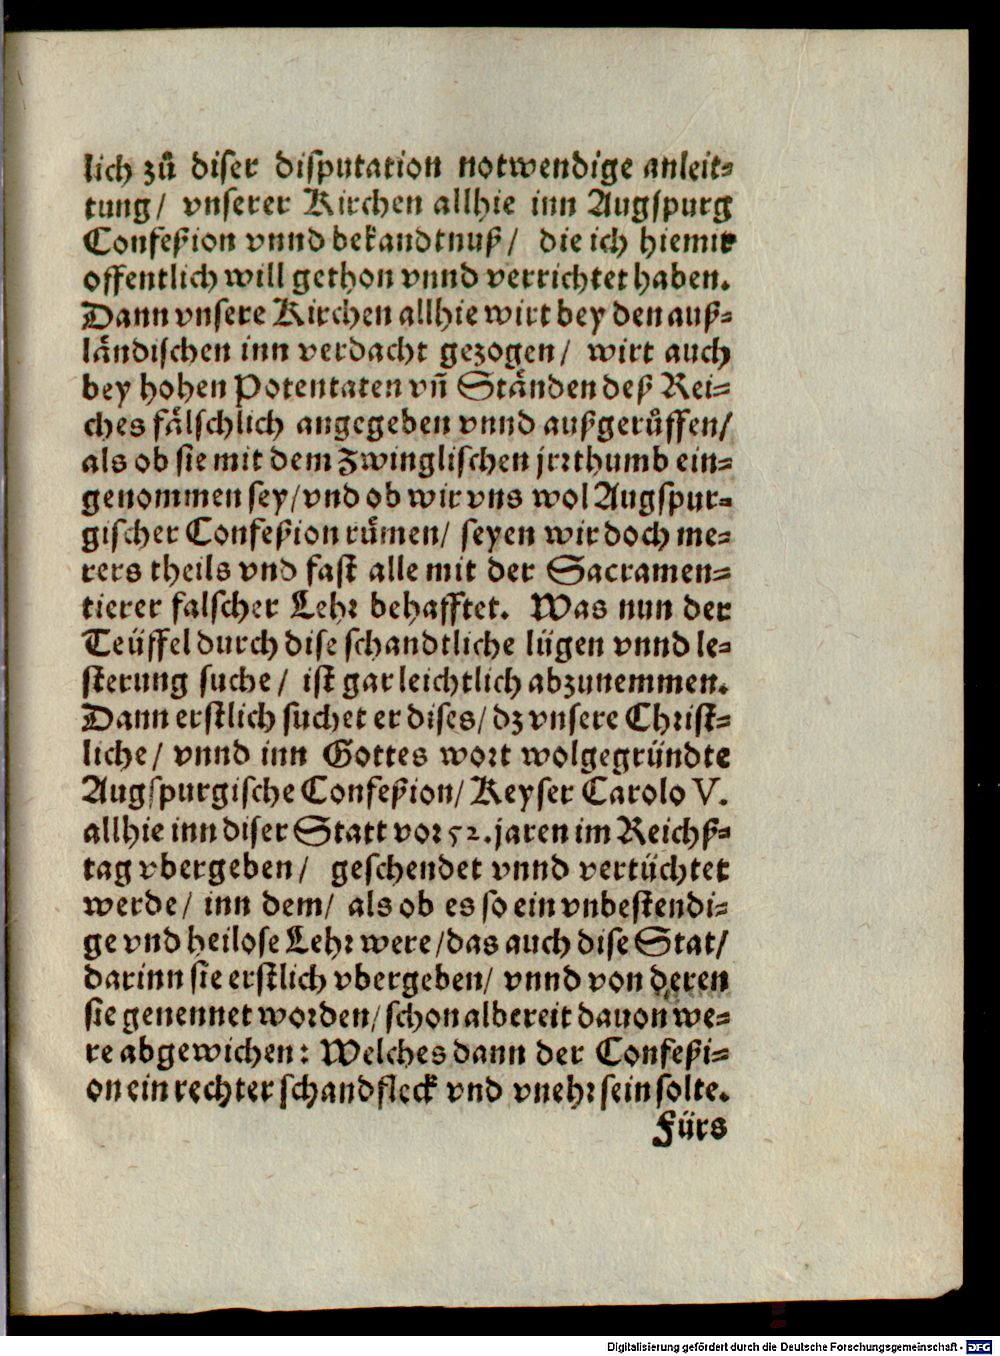 lich zů diser disputation notwendige anleit⸗
tung/ vnserer Kirchen allhie inn Augspurg
Confeßion vnnd bekandtnuß/ die ich hiemit
offentlich will gethon vnnd verrichtet haben.
Dann vnsere Kirchen allhie wirt bey den auß⸗
ländischen inn verdacht gezogen/ wirt auch
bey hohen Potentaten vñ Ständen deß Rei⸗
ches fälschlich angegeben vnnd außgerůffen/
als ob sie mit dem Zwinglischen jrrthumb ein⸗
genommen sey/vnd ob wir vns wol Augspur⸗
gischer Confeßion růmen/ seyen wir doch me⸗
rers theils vnd fast alle mit der Sacramen⸗
tierer falscher Lehr behafftet. Was nun der
Teüffel durch dise schandtliche lügen vnnd le⸗
sterung suche/ ist gar leichtlich abzunemmen.
Dann erstlich suchet er dises/ dz vnsere Christ⸗
liche/ vnnd inn Gottes wort wolgegründte
Augspurgische Confeßion/ Keyser Carolo V.
allhie inn diser Statt vor 52. jaren im Reichß⸗
tag vbergeben/ geschendet vnnd vertüchtet
werde/ inn dem/ als ob es so ein vnbestendi⸗
ge vnd heilose Lehr were/das auch dise Stat/
darinn sie erstlich vbergeben/ vnnd von deren
sie genennet worden/ schon albereit dauon we⸗
re abgewichen: Welches dann der Confeßi⸗
on ein rechter schandfleck vnd vnehr sein solte.
Fürs
Digitalisierung gefördert durch die Deutsche Forschungsgemeinschaft - DFG